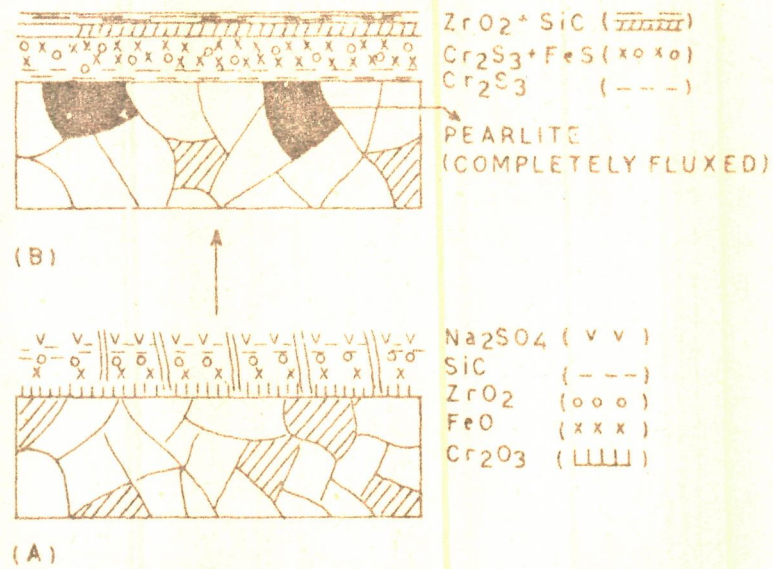 ZrO2+ SiC ( )
Cr2S3+FeS( x o x o)
Cr2S3 ( – – – )
PEARLITE
(COMPLETELY FLUXED)
(B)
Na2SO4 ( v v )
SiC ( – – – )
ZrO2 ( o o o )
FeO ( x x x )
Cr2O3 ( )
(A)